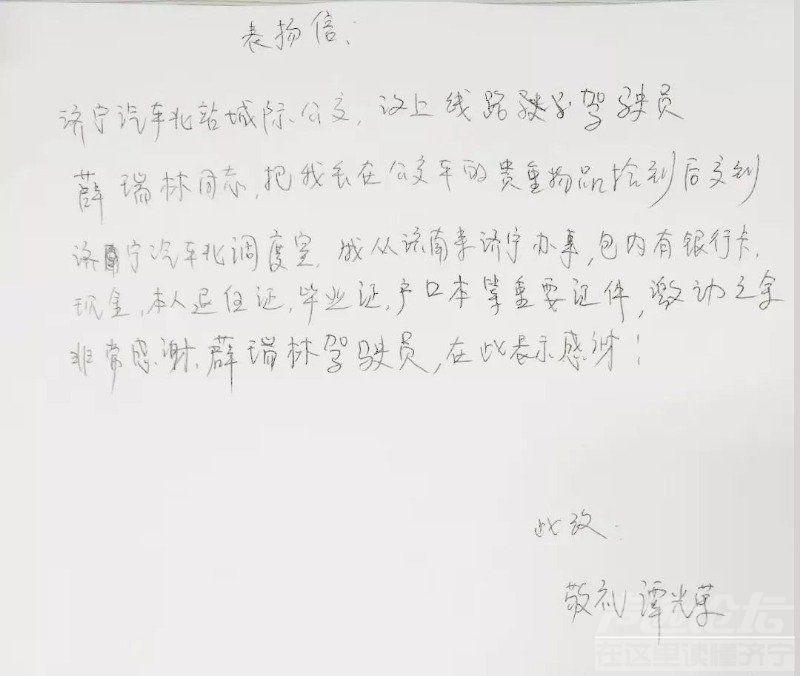 表扬信:
济宁汽车北站城际公交,汶上线路驾驶员
薛瑞林同志,把我丢在公交车的贵重物品捡到后交到
济宁汽车北调度室,我从济南来济宁办事,包内有银行卡,
现金,本人退伍证,毕业证,户口本等重要证件,激动之余
非常感谢薛瑞林驾驶员,在此表示感谢!
此致:
敬礼谭光
在这里读懂济宁